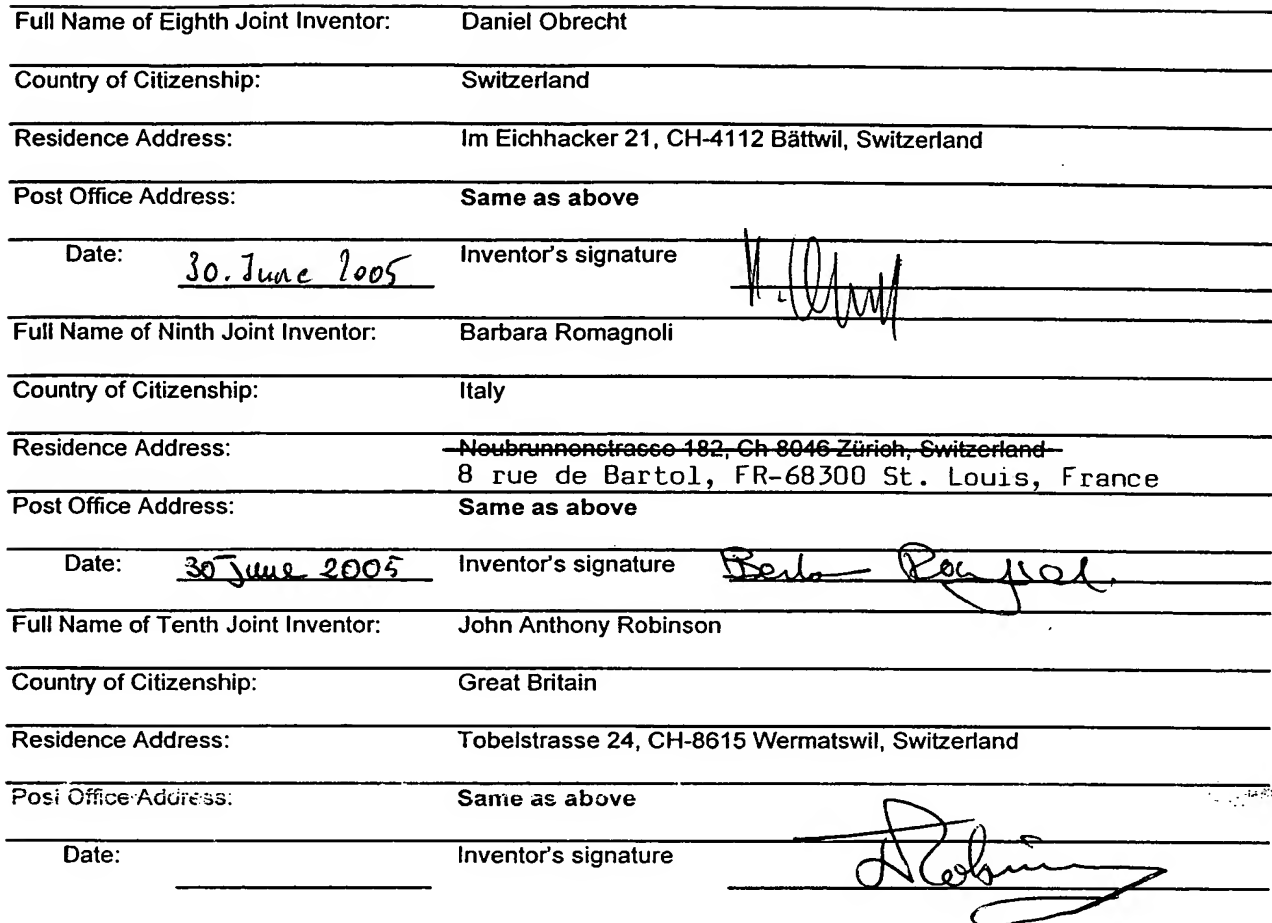 Full Name of Eighth Joint Inventor: Daniel Obrecht
Country of Citizenship: Switzerland
Residence Address: Im Eichhacker 21, CH-4112 Bättwil, Switzerland
Post Office Address: Same as above
Date: 30. June 2005 Inventor's signature
Full Name of Ninth Joint Inventor: Barbara Romagnoli
Country of Citizenship: Italy
Residence Address: Neubrunnenstrasse 182, Ch-8046 Zürich, Switzerland
8 rue de Bartol, FR-68300 St. Louis, France
Post Office Address: Same as above
Date: 30 June 2005 Inventor's signature
Full Name of Tenth Joint Inventor: John Anthony Robinson
Country of Citizenship: Great Britain
Residence Address: Tobelstrasse 24, CH-8615 Wermatswil, Switzerland
Post Office Address: Same as above
Date: Inventor's signature